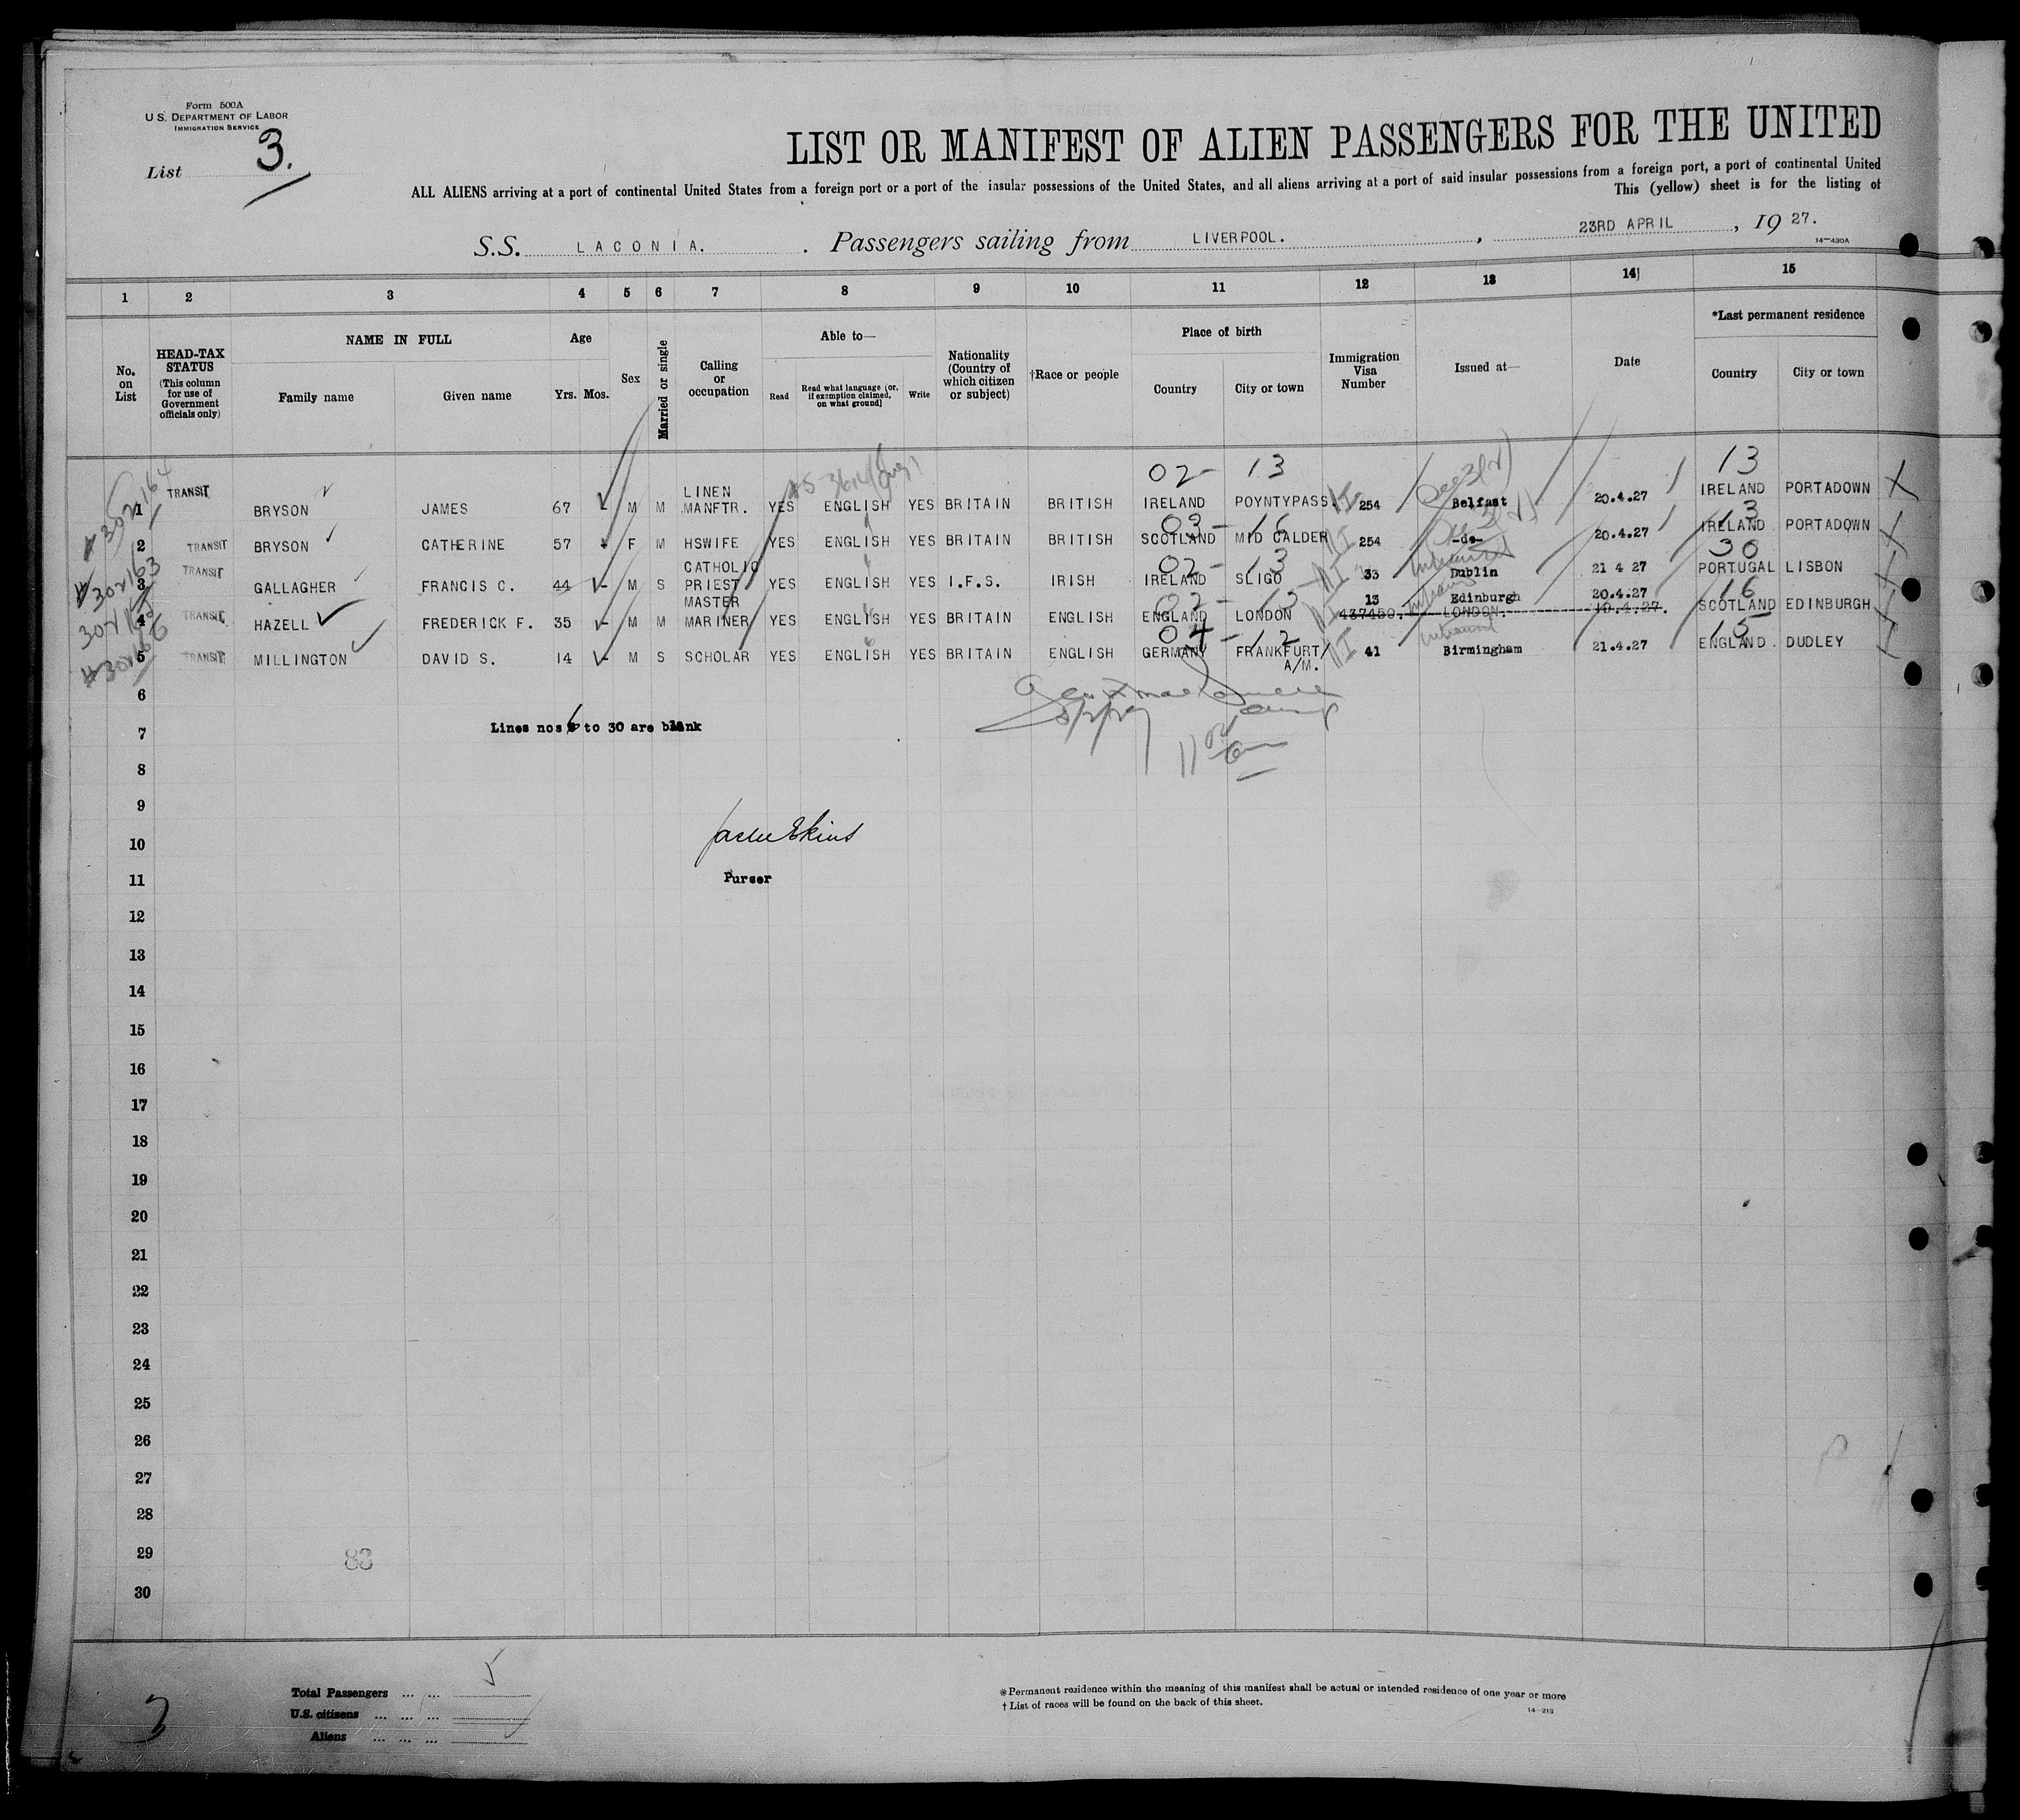 Form 500A
U.S. DEPARTMENT OF LABOR
IMMIGRATION SERVICE
List 3.
LIST OR MANIFEST OF ALIEN PASSENGERS FOR THE UNITED
ALL ALIENS arriving at a port of continental United States from a foreign port or a port of the insular possessions of the United States, and all aliens arriving at a port of said insular possessions from a foreign port, a port of continental United
This (yellow) sheet is for the listing of
S.S. LACONIA. . Passengers sailing from LIVERPOOL. , 23RD APRIL , 19 27.
14—430A
1 2 3 4 5 6 7 8 9 10 11 12 13 14 15
No. on List
HEAD-TAX STATUS (This column for use of Government officials only)
NAME IN FULL
Family name Given name
Age
Yrs. Mos.
Sex
Married or single
Calling or occupation
Able to—
Read
Read what language [or, if exemption claimed, on what ground]
Write
Nationality (Country of which citizen or subject)
†Race or people
Place of birth
Country City or town
Immigration Visa Number
Issued at—
Date
*Last permanent residence
Country City or town
02- 13 13
1 TRANSIT BRYSON JAMES 67 - M M LINEN MANFTR. YES ENGLISH YES BRITAIN BRITISH IRELAND POYNTYPASS. 254 Belfast 20.4.27 IRELAND PORTADOWN
03- 16 13
2 TRANSIT BRYSON CATHERINE 57 F M HSWIFE YES ENGLISH YES BRITAIN BRITISH SCOTLAND MID CALDER 254 -do- 20.4.27 IRELAND PORTADOWN
02- 13 30
3 TRANSIT GALLAGHER FRANCIS C. 44 - M S CATHOLIC PRIEST YES ENGLISH YES I.F.S. IRISH IRELAND SLIGO 33 Dublin 21 4 27 PORTUGAL LISBON
02- 13 16
13 Edinburgh 20.4.27
4 TRANSIT HAZELL FREDERICK F. 35 - M M MASTER MARINER YES ENGLISH YES BRITAIN ENGLISH ENGLAND LONDON 437450. LONDON. 19.4.27. SCOTLAND EDINBURGH
04- 12 15
5 TRANSIT MILLINGTON DAVID S. 14 - M S SCHOLAR YES ENGLISH YES BRITAIN ENGLISH GERMANY FRANKFURT/A/M. 41 Birmingham 21.4.27 ENGLAND. DUDLEY
6
Lines nos 6 to 30 are blank
7
8
9
10
11 Purser
12
13
14
15
16
17
18
19
20
21
22
23
24
25
26
27
28
29 83
30
Total Passengers ... ... 5
U.S. citizens ... ... ...
Aliens ... ... ...
3
*Permanent residence within the meaning of this manifest shall be actual or intended residence of one year or more
†List of races will be found on the back of this sheet.
14—213